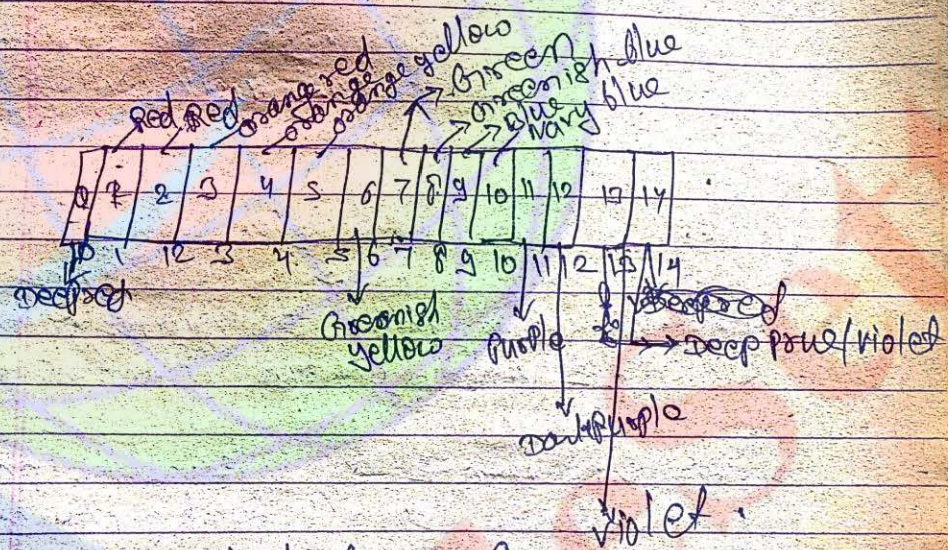 Red Red orange red orange orange yellow Green Greenish blue Blue Navy blue
0 1 2 3 4 5 6 7 8 9 10 11 12 13 14
0 1 2 3 4 5 6 7 8 9 10 11 12 13 14
Deepred
Greenish yellow
Purple
Deep Prue/violet
Dark Purple
violet.